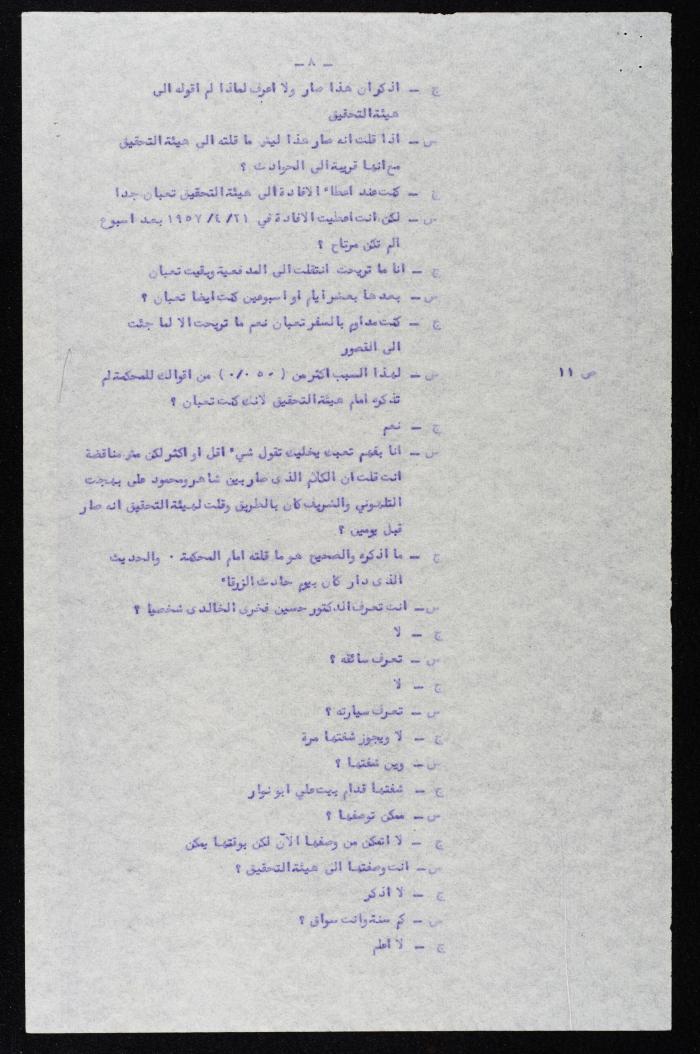 - ٨ -
ج - اذكر ان هذا صار ولا اعرف لماذا لم اقوله الى
هيئة التحقيق
س - اذا قلت انه صار هذا ليش ما قلته الى هيئة التحقيق
مع انها قريبة الى الحوادث ؟
ج - كنت عند اعطاء الافادة الى هيئة التحقيق تعبان جدا
س - لكن انت اعطيت الافادة في ٢١/ ٤/ ١٩٥٧ بعد اسبوع
الم تكن مرتاح ؟
ج - انا ما تريحت انتقلت الى المدفعية وبقيت تعبان
س - بعدها بعشر ايام او اسبوعين كنت ايضا تعبان ؟
ج - كنت مداوم بالسفر تعبان نعم ما تريحت الا لما جئت
الى القصور
ص ١١
س - لهذا السبب اكثر من ( ٥٠ ٠/٠ ) من اقوالك للمحكمة لم
تذكره امام هيئة التحقيق لانك كنت تعبان ؟
ج - نعم
س - انا بفهم تعبك يخليك تقول شيء اقل او اكثر لكن مش مناقضة
انت قلت ان الكلام الذى صار بين شاهر ومحمود على بهجت
التلهوني والشريف كان بالطريق وقلت لهيئة التحقيق انه صار
قبل يومين ؟
ج - ما اذكره والصحيح هو ما قلته امام المحكمة . والحديث
الذى دار كان بيوم حادث الزرقاء
س - انت تعرف الدكتور حسين فخرى الخالدى شخصيا ؟
ج - لا
س - تعرف سائقه ؟
ج - لا
س - تعرف سيارته ؟
ج - لا ويجوز شفتها مرة
س - وين شفتها ؟
ج - شفتها قدام بيت علي ابو نوار
س - ممكن توصفها ؟
ج - لا اتمكن من وصفها الآن لكن بوقتها يمكن
س - انت وصفتها الى هيئة التحقيق ؟
ج - لا اذكر
س - كم سنة وانت سواق ؟
ج - لا اعلم